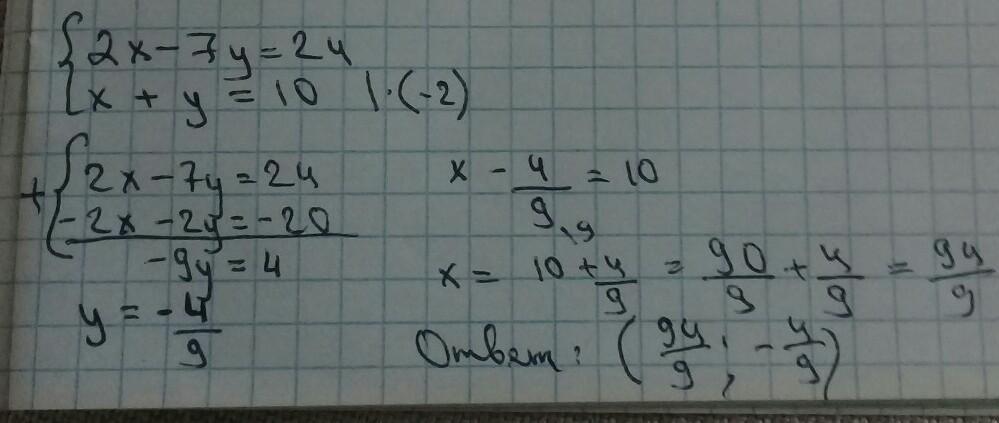 { 2x - 7y = 24
x + y = 10 | · (-2)
+ { 2x - 7y = 24
- 2x - 2y = -20
- 9y = 4
y = - 4/9
x - 4/9 = 10
x = 10 + 4/9 = 90/9 + 4/9 = 94/9
Ответ: ( 94/9 ; - 4/9 )